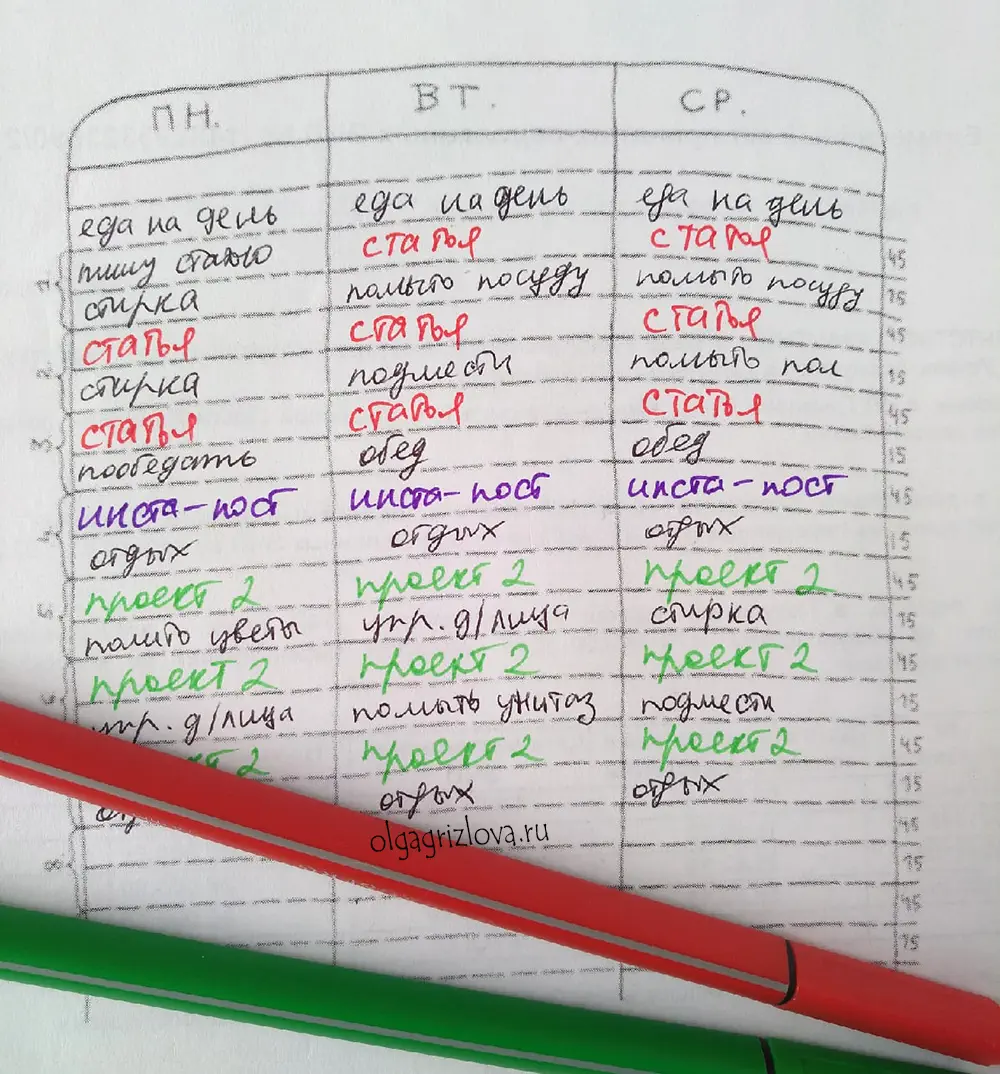 ПН. ВТ. СР.
еда на день еда на день еда на день
1 пишу статью статья статья 45
стирка помыть посуду помыть посуду 15
2 статья статья статья 45
стирка подмести помыть пол 15
3 статья статья статья 45
пообедать обед обед 15
4 инста-пост инста-пост инста-пост 45
отдых отдых отдых 15
5 проект 2 проект 2 проект 2 45
полить цветы упр. д/лица стирка 15
6 проект 2 проект 2 проект 2 45
упр. д/лица помыть унитаз подмести 15
2 проект 2 проект 2 45
отдых отдых 15
olgagrizlova.ru 45
8 15
15
15